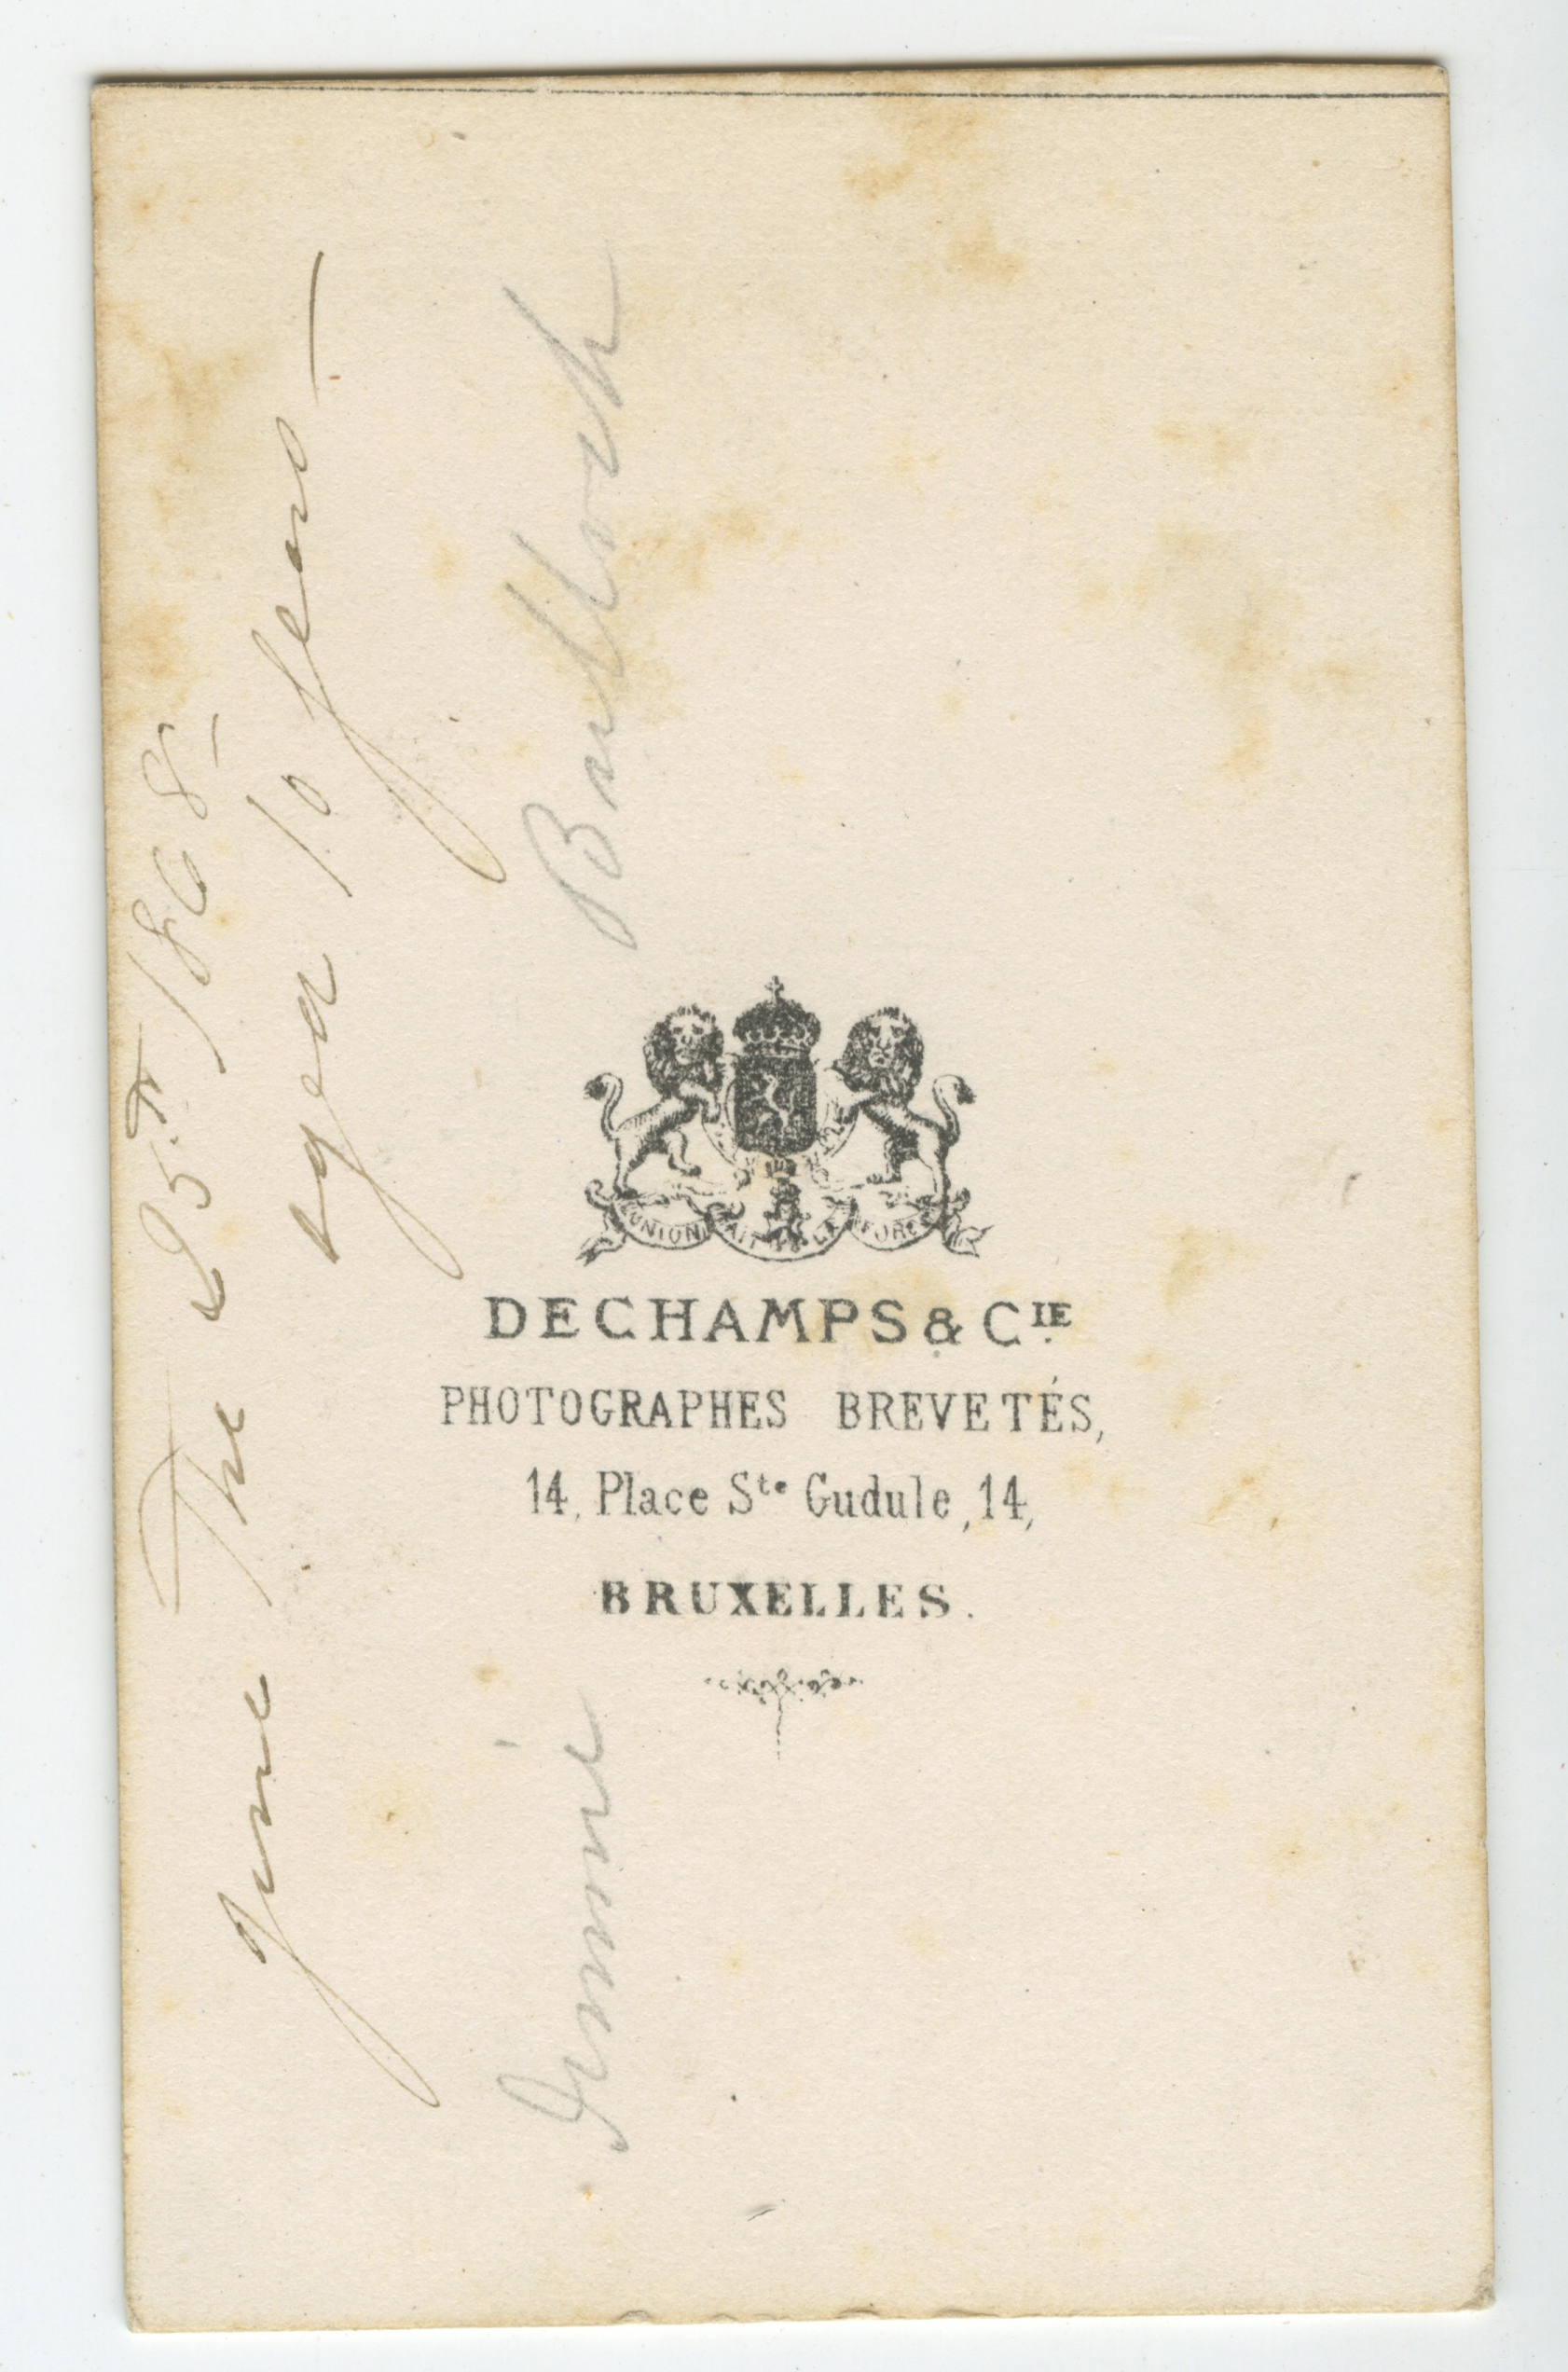 June The 25th 1868
aged 10 years —
UNION FAIT LA FORCE
DECHAMPS & CIE
PHOTOGRAPHES BREVETÉS,
14, Place Ste Gudule, 14,
BRUXELLES.